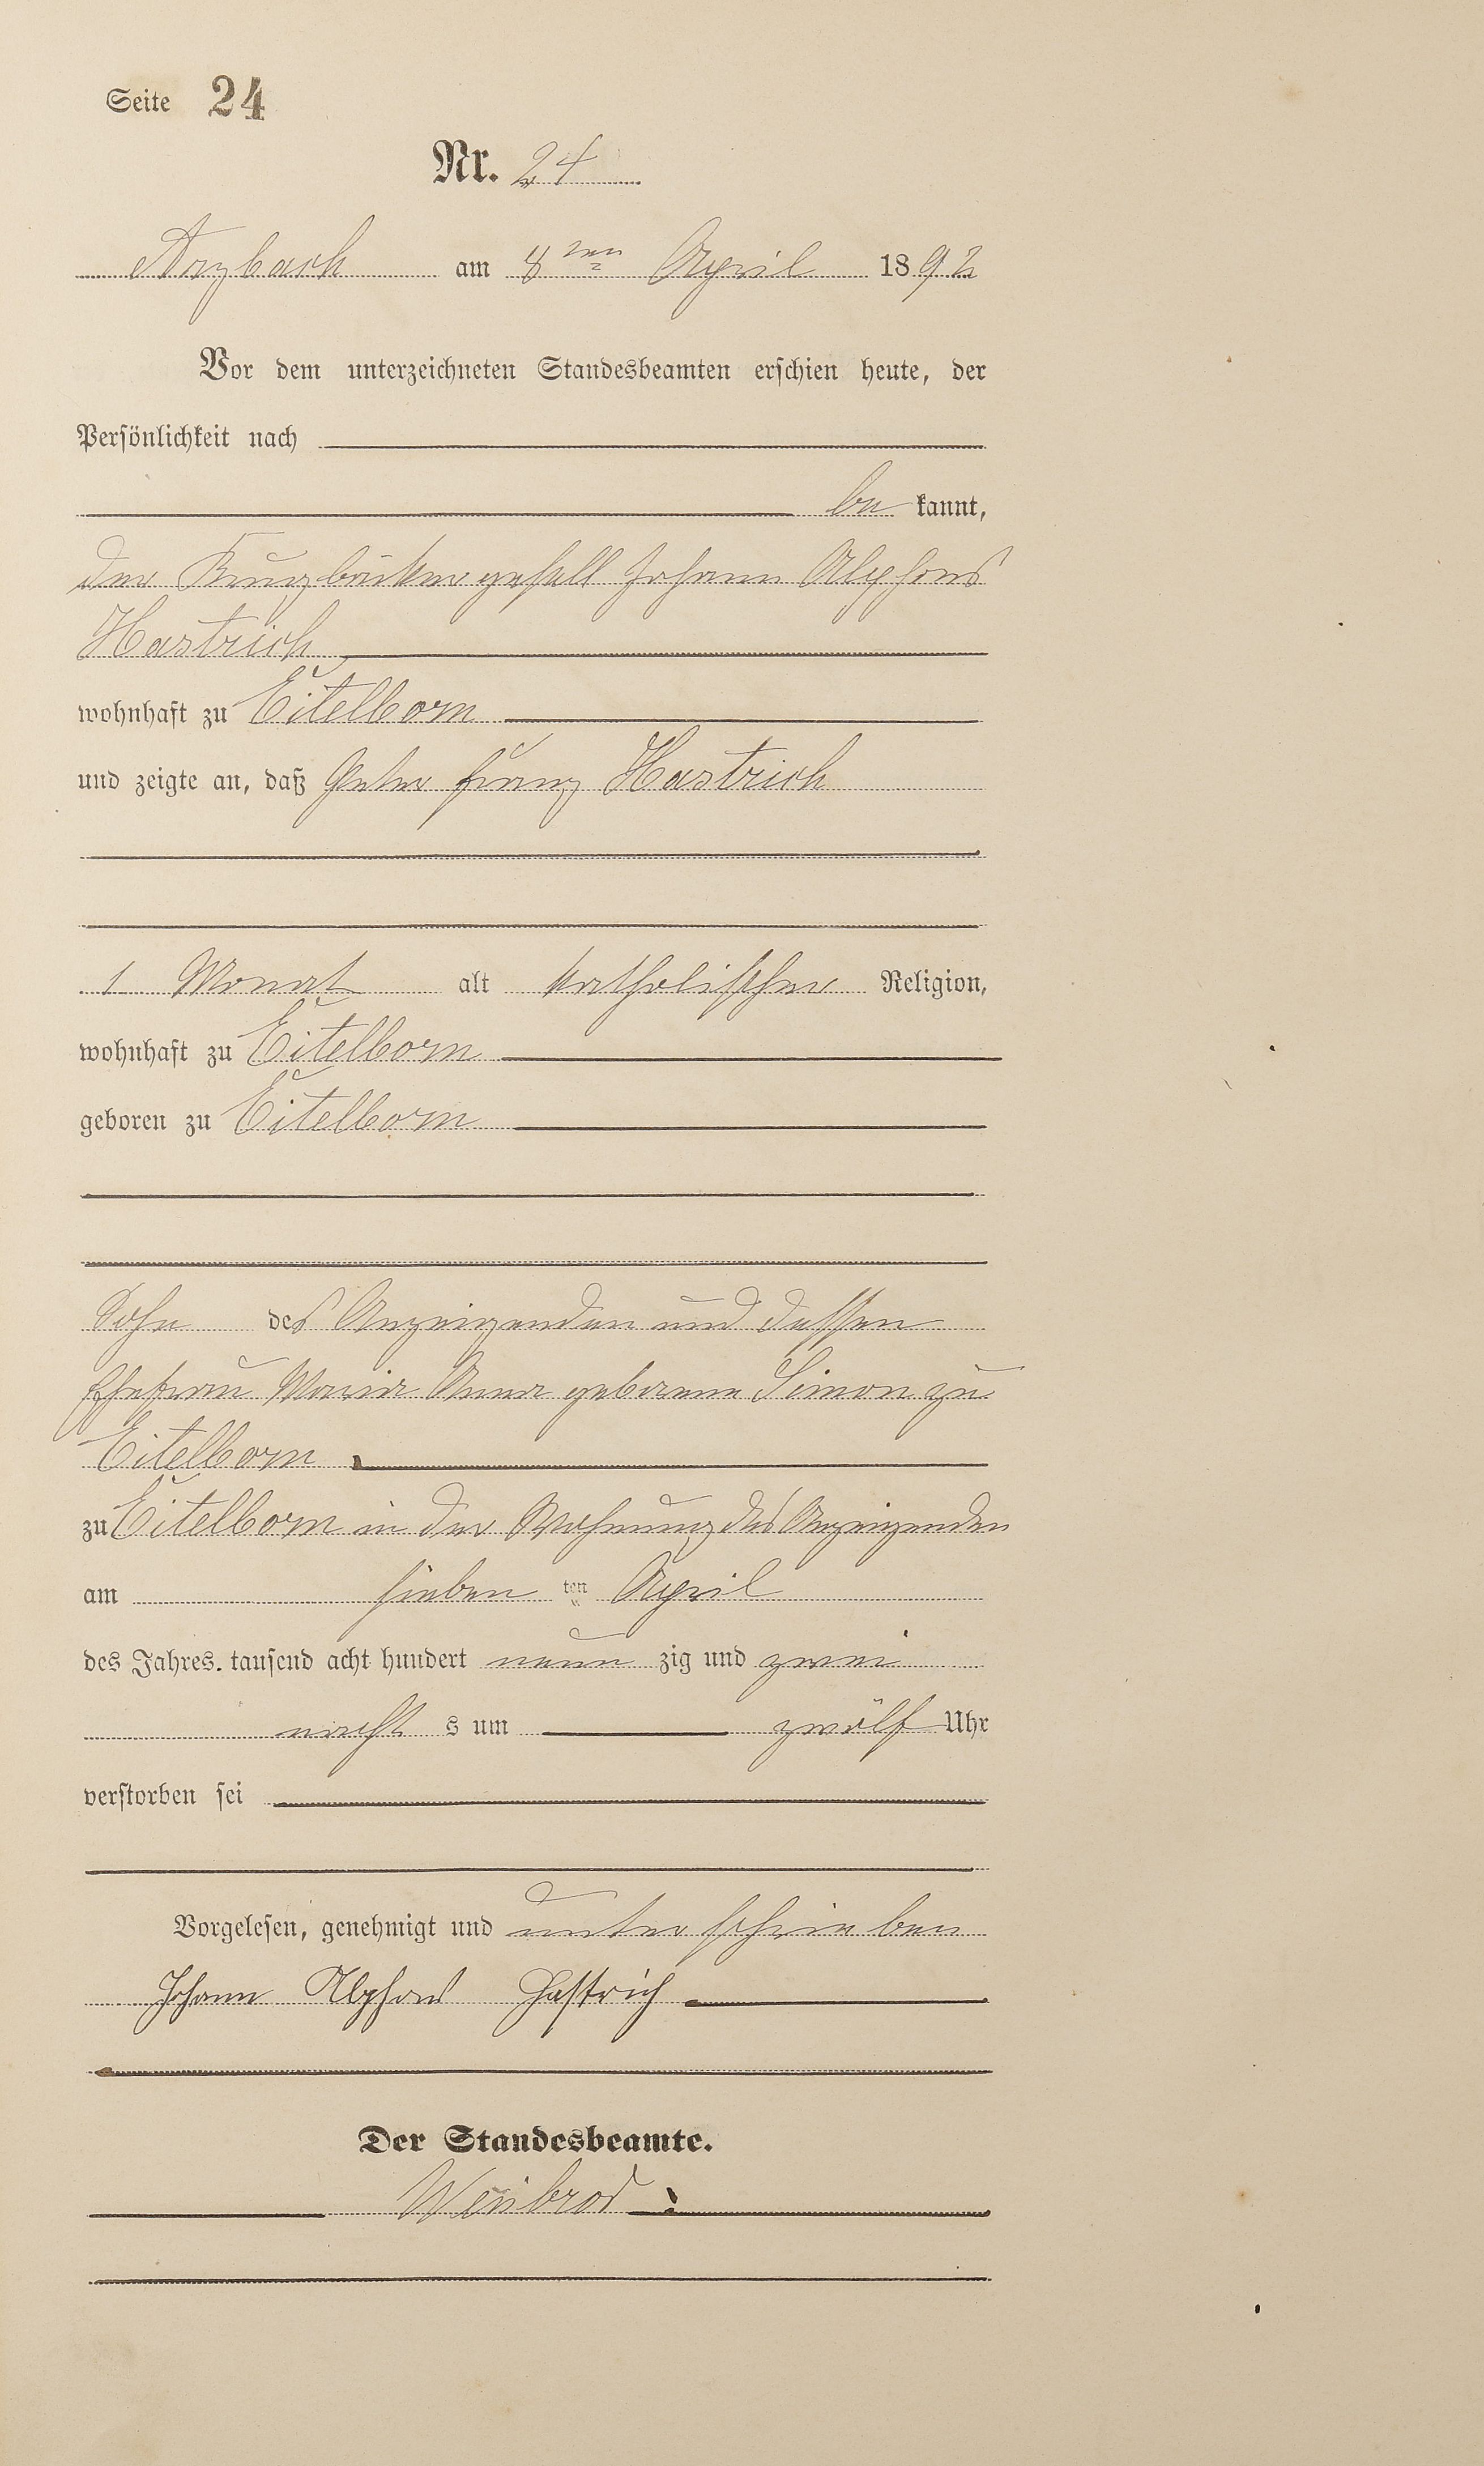 Seite 24
Nr. 24
Arzbach am 8ten April 1892
Vor dem unterzeichneten Standesbeamten erschien heute, der
Persönlichkeit nach
be kannt,
der Krugbäckergesell Johann Alphons
Hastrich
wohnhaft zu Eitelborn
und zeigte an, daß Peter Franz Hastrich
1 Monat alt katholischer Religion,
wohnhaft zu Eitelborn
geboren zu Eitelborn
Sohn des Anzeigenden und dessen
Ehefrau Maria Anna geborene Simon zu
Eitelborn
zu Eitelborn in der Wohnung des Anzeigenden
am sieben ten April
des Jahres tausend acht hundert neun zig und zwei
nacht s um zwölf Uhr
verstorben sei
Vorgelesen, genehmigt und unterschrieben
Johann Alphons Hastrich
Der Standesbeamte.